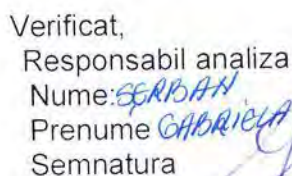 Verificat,
Responsabil analiza
Nume:SERBAN
Prenume GABRIELA
Semnatura